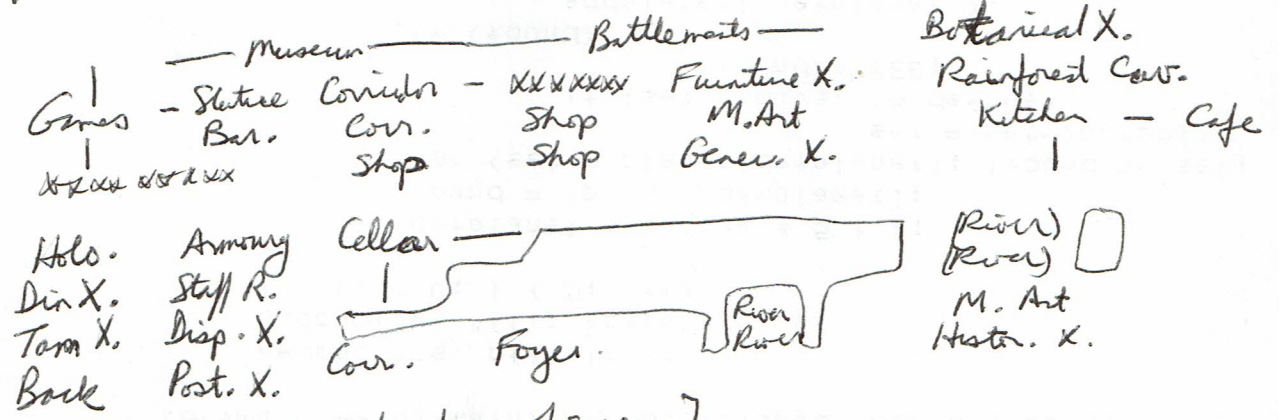 Museum Battlements Botanical X.
Games - Statue Corridor - xxxxxxx Furniture X. Rainforest Corr.
Bar. Corr. Shop M.Art Kitchen - Cafe
xxxx xxxxx Shop Shop Gener. X.
Holo. Armoury Cellar (River)
Din X. Staff R. (River)
Tom X. Disp. X. River M. Art
Back Post. X. Corr. Foyer. River Histor. X.